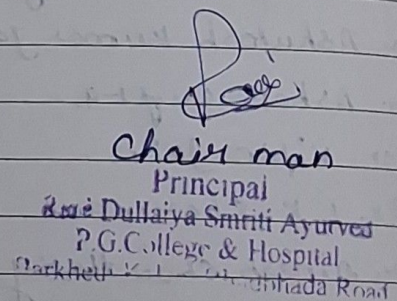 Chair man
Principal
Dullaiya Smriti Ayurved
P.G.College & Hospital
Road